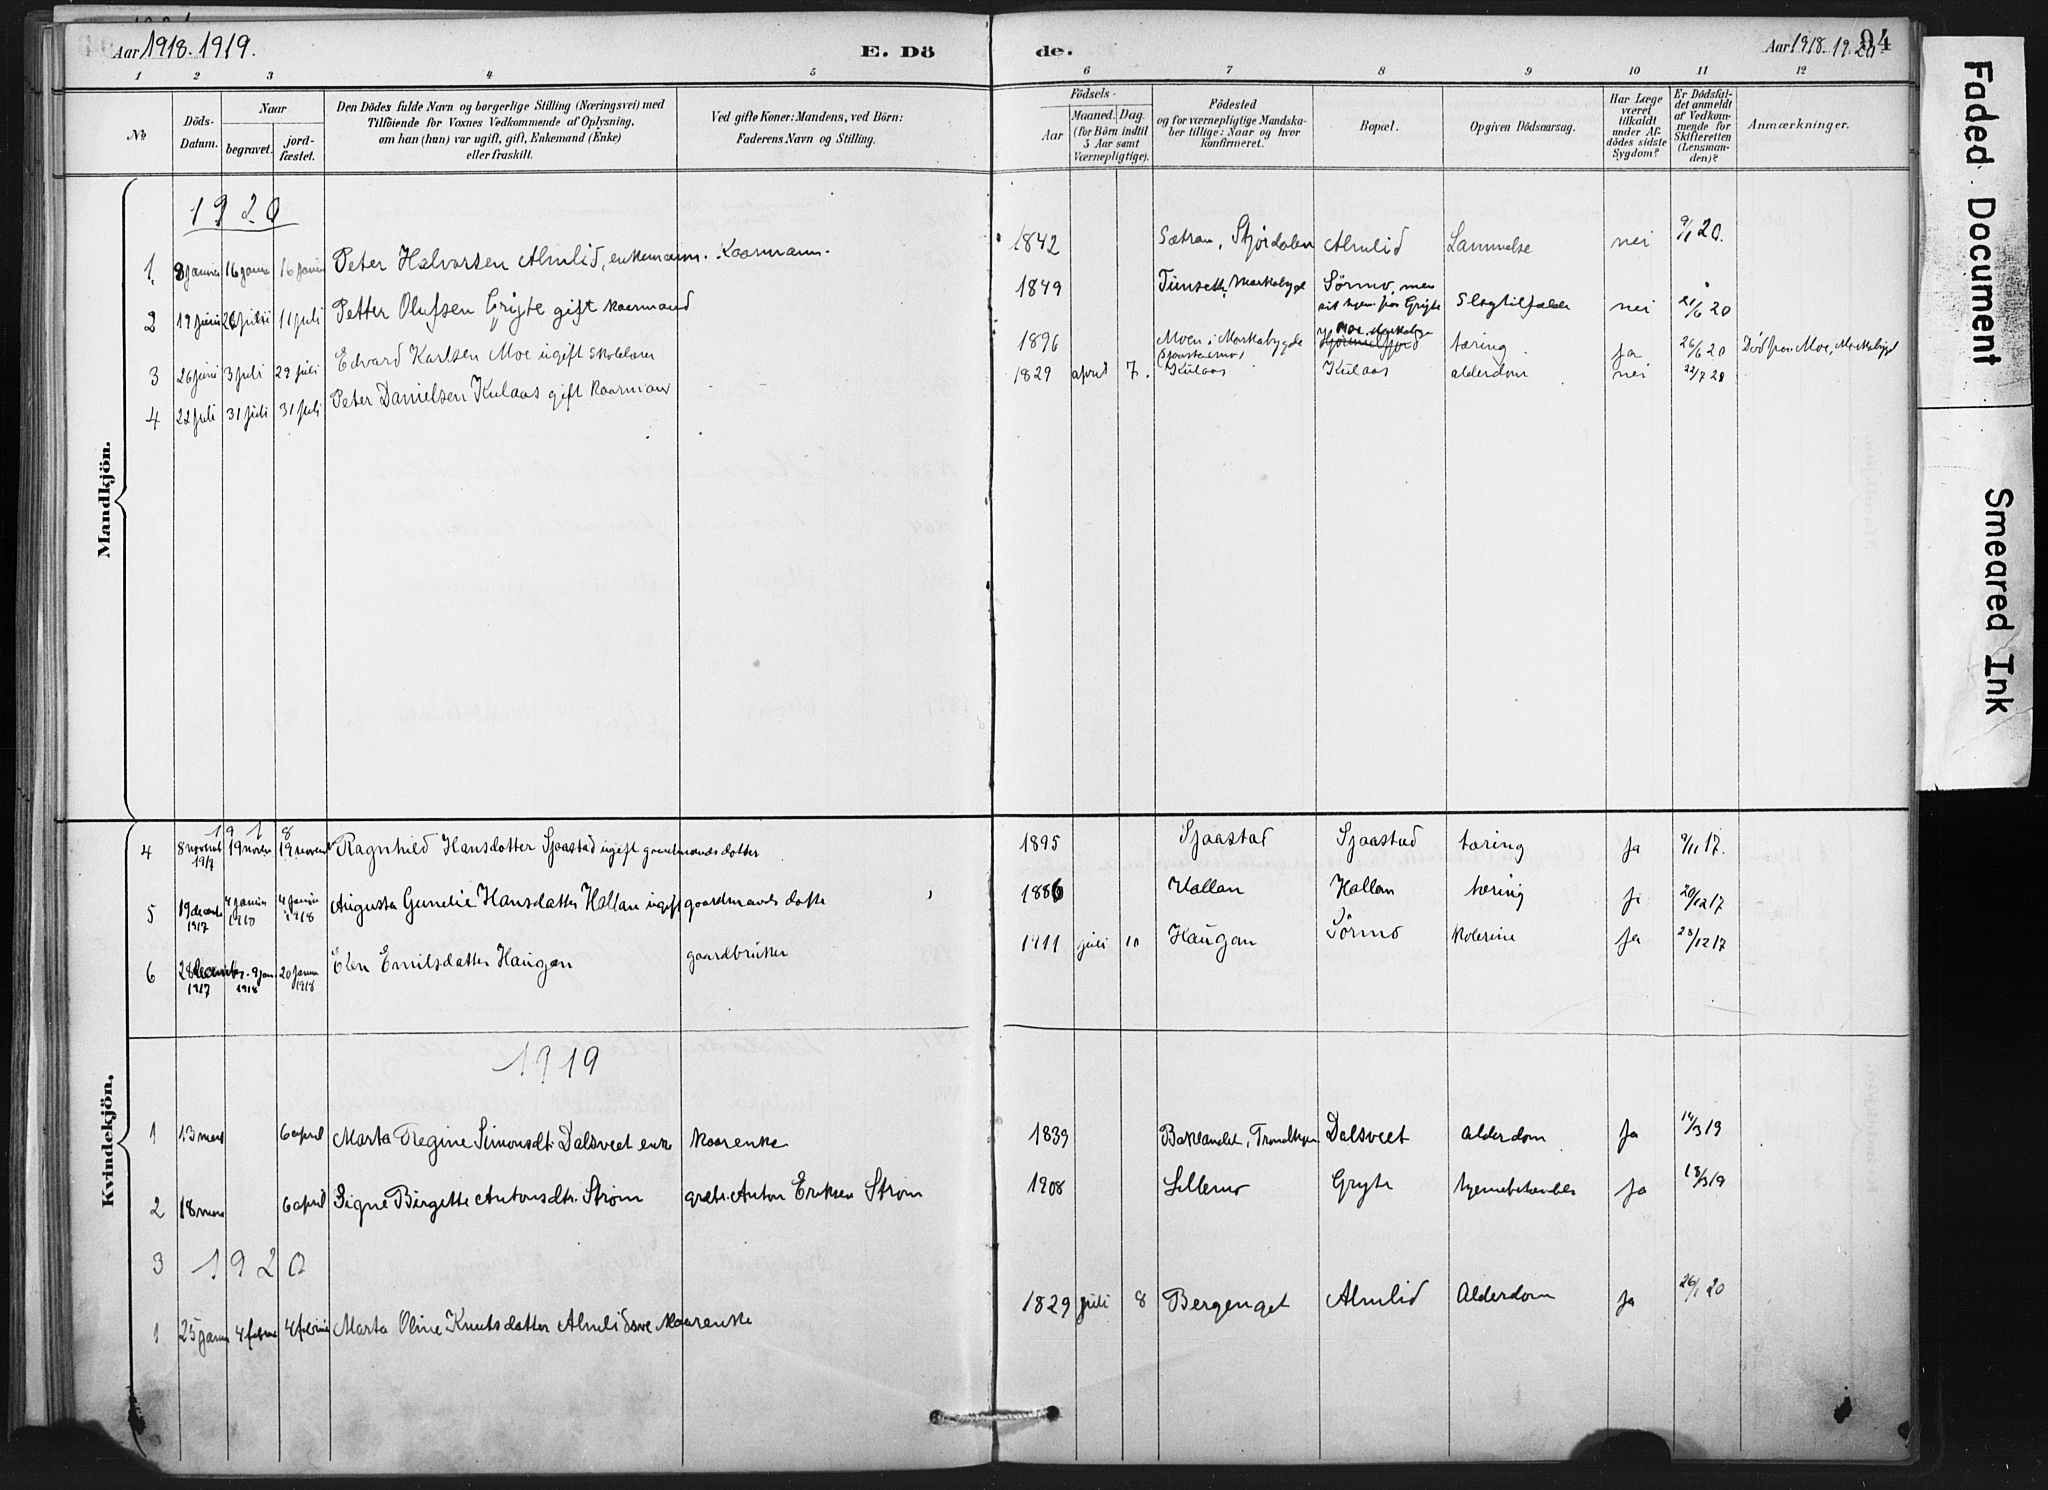 Aar 1918. 1919.
E. Dö de.
Aar 1918. 19. 20
94
1 2 3 4 5 6 7 8 9 10 11 12
No
Döds-Datum.
Naar
begravet.
jord-fæstet.
Den Dödes fulde Navn og borgerlige Stilling (Næringsvei) med
Tilföiende for Voxnes Vedkommende af Oplysning,
om han (hun) var ugift, gift, Enkemand (Enke)
eller fraskilt.
Ved gifte Koner: Mandens, ved Börn:
Faderens Navn og Stilling.
Födsels-
Aar
Maaned. Dag.
(for Börn indtil
5 Aar samt
Værnepligtige).
Födested
og for værnepligtige Mandska-
ber tillige: Naar og hvor
konfirmeret.
Bopæl.
Opgiven Dödsaarsag.
Har Læge
været
tilkaldt
under Af-
dödes sidste
Sygdom?
Er Dödsfal-
det anmeldt
af Vedkom-
mende for
Skifteretten
(Lensman-
den)?
Anmærkninger.
Mandkjön.
1920
1. 8 januar 16 januar 16 januar Peter Halvorsen Almlid, enkemann. Kaarmann. 1842 Sætran, Stjördalen Almlid Lammelse nei 9/1 20.
2 19 juni 26 juni 11 juli Petter Olufsen Gryte gift kaarmand 1849 Tunseth, Markabygd Sörmo, men sit hjem paa Gryte Slagtilfælde nei 21/6 20
3 26 juni 3 juli 29 juli Edvard Karlsen Moe ugift skolelærer 1896 Moen i Markabygde Moe, Markabygd tæring ja 26/6 20 Död paa Moe, Markabygd
4 22 juli 31 juli 31 juli Peter Danielsen Kulaas gift kaarmann 1829 april 7. Kulaas Kulaas alderdom nei 22/7 20
Kvindekjön.
1918
4 8 novemb 1917 19 novem 19 novem Ragnhild Hansdatter Sjaastad ugift gaardmandsdatter 1895 Sjaastad Sjaastad tæring ja 9/11 17.
5 19 decemb 1917 4 januar 4 januar 1918 Augusta Gunelie Hansdatter Hallan ugift gaardmands datte 1886 Hallan Hallan tæring ja 20/12 17
6 28 December 1917 9 jan 1918 20 januar 1918 Elen Emilsdatter Haugan gaardbruker 1911 juli 10 Haugan Sörmo kolerine ja 28/12 17
1919
1 13 mars 6 april Marta Regine Simonsdt. Dalsveet enke kaarenke 1839 Baklandet, Trondhjem Dalsveet Alderdom ja 14/3 19
2 18 mars 6 april Signe Birgitte Antonsdtr. Ström grdbr. Anton Eriksen Ström 1908 Lillemo Gryte hjernebetændelse ja 18/3 19
3 1920
1 25 januar 4 februar 4 februar Marta Oline Knutsdatter Almlidsve Kaarenke 1829 juli 8 Bergenget Almlid Alderdom ja 26/1 20
Faded Document
Smeared Ink